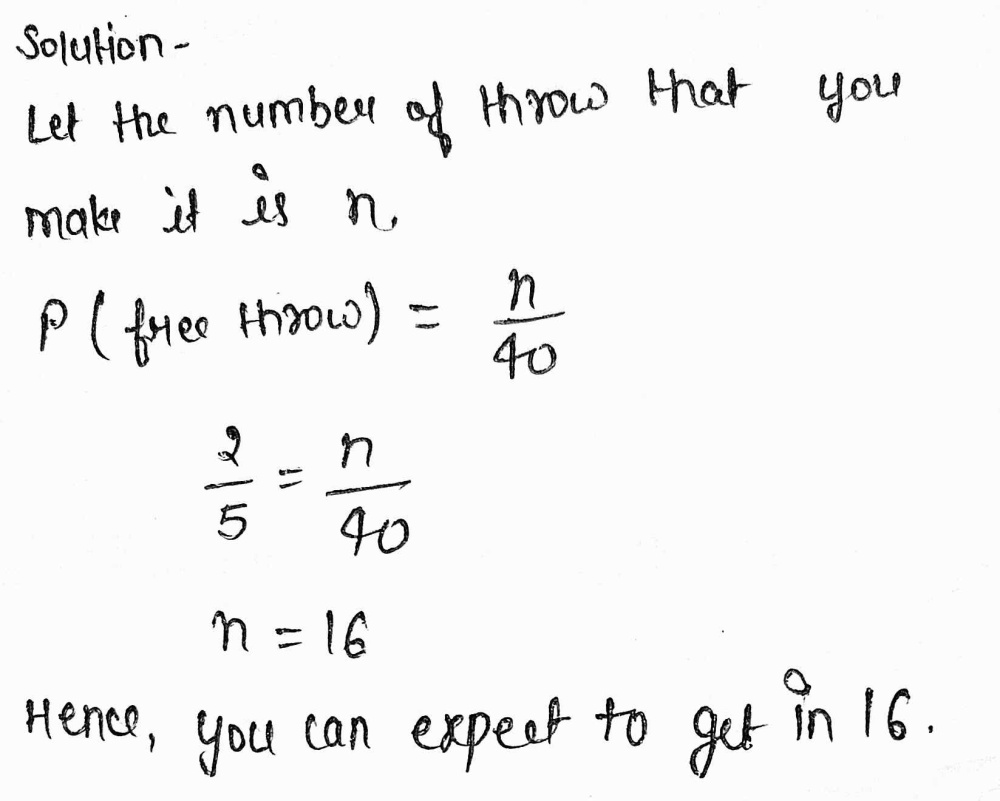 Solution-
Let the number of throw that you
make it is n.
P (free throw) = n/40
2/5 = n/40
n = 16
Hence, you can expect to get in 16.